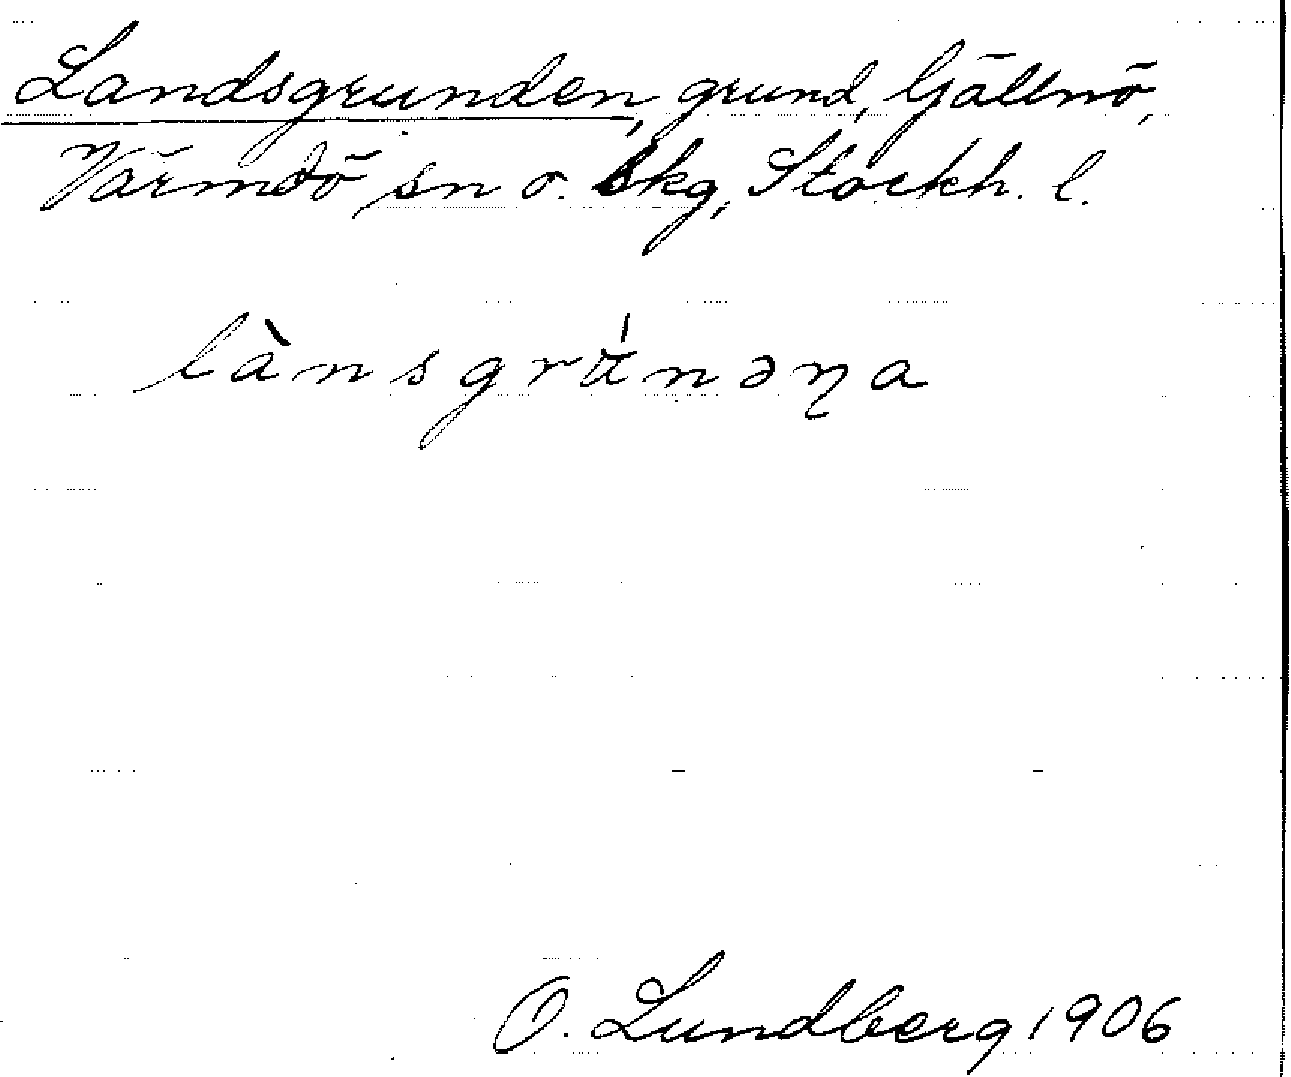 Landsgrunden, grund, Gällnö,
Värmdö sn o. skg, Stockh. l.
lànsgrú̈nəṇa
O. Lundberg 1906